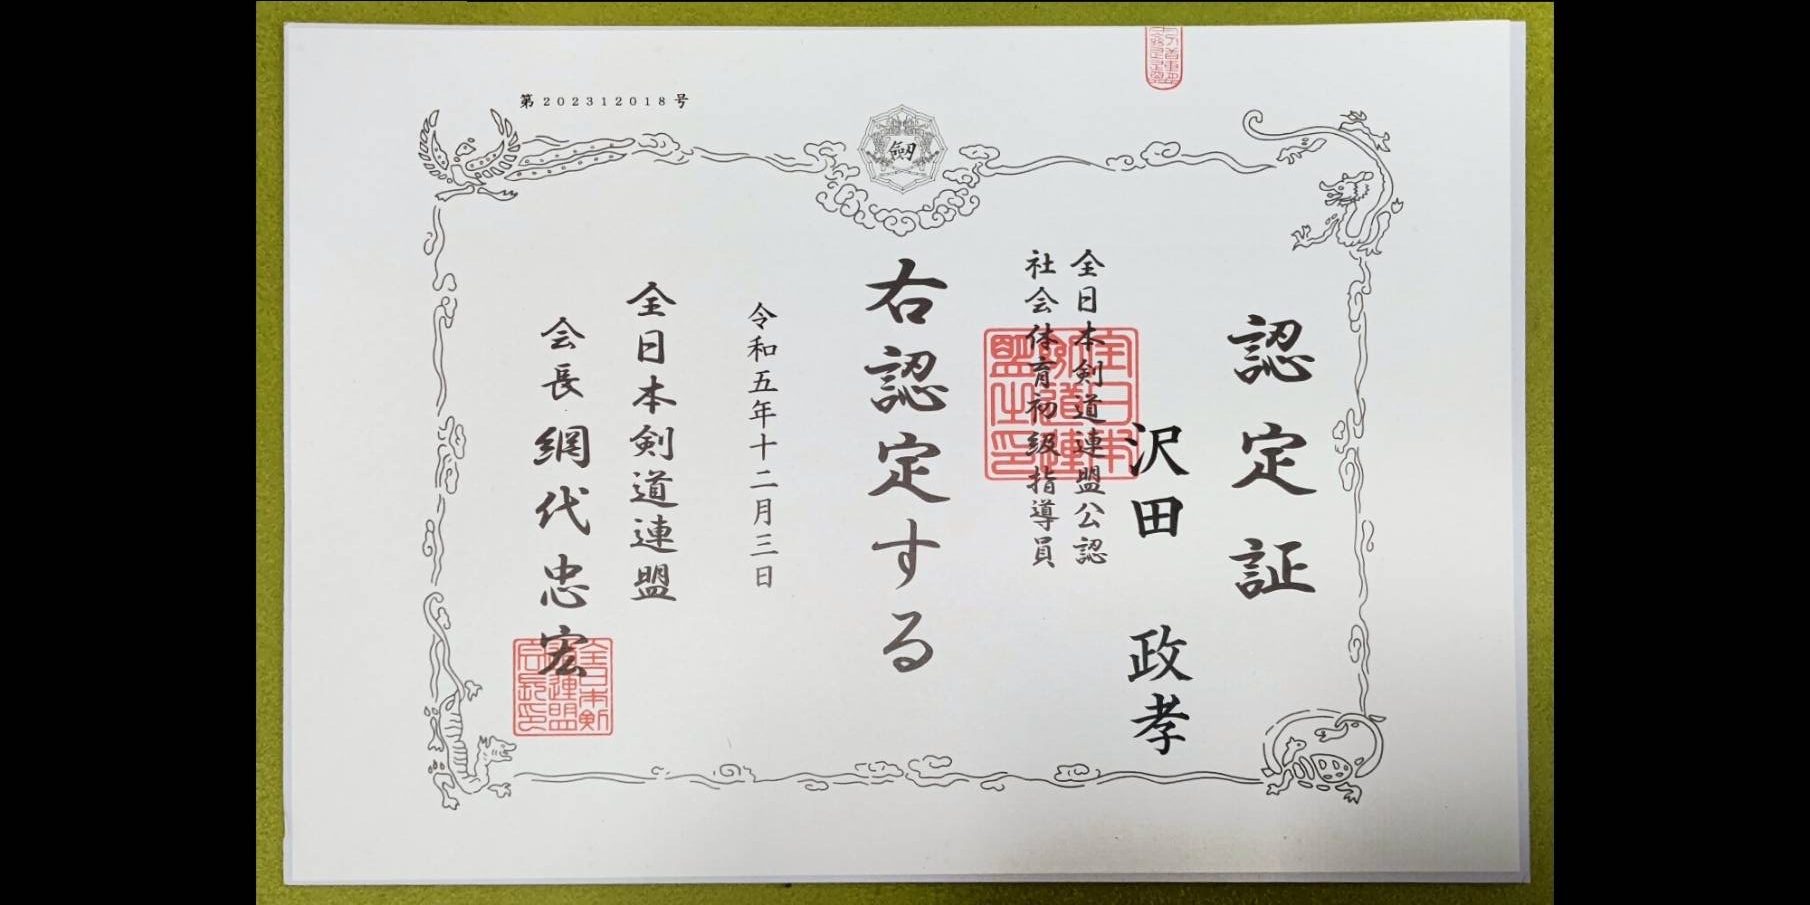 第202312018号
剣
認定証
沢田 政孝
全日本剣道連盟公認
社会体育初級指導員
右認定する
令和五年十二月三日
全日本剣道連盟
会長 網代忠宏
全日本剣道連盟之印
全日本剣道連盟会長印